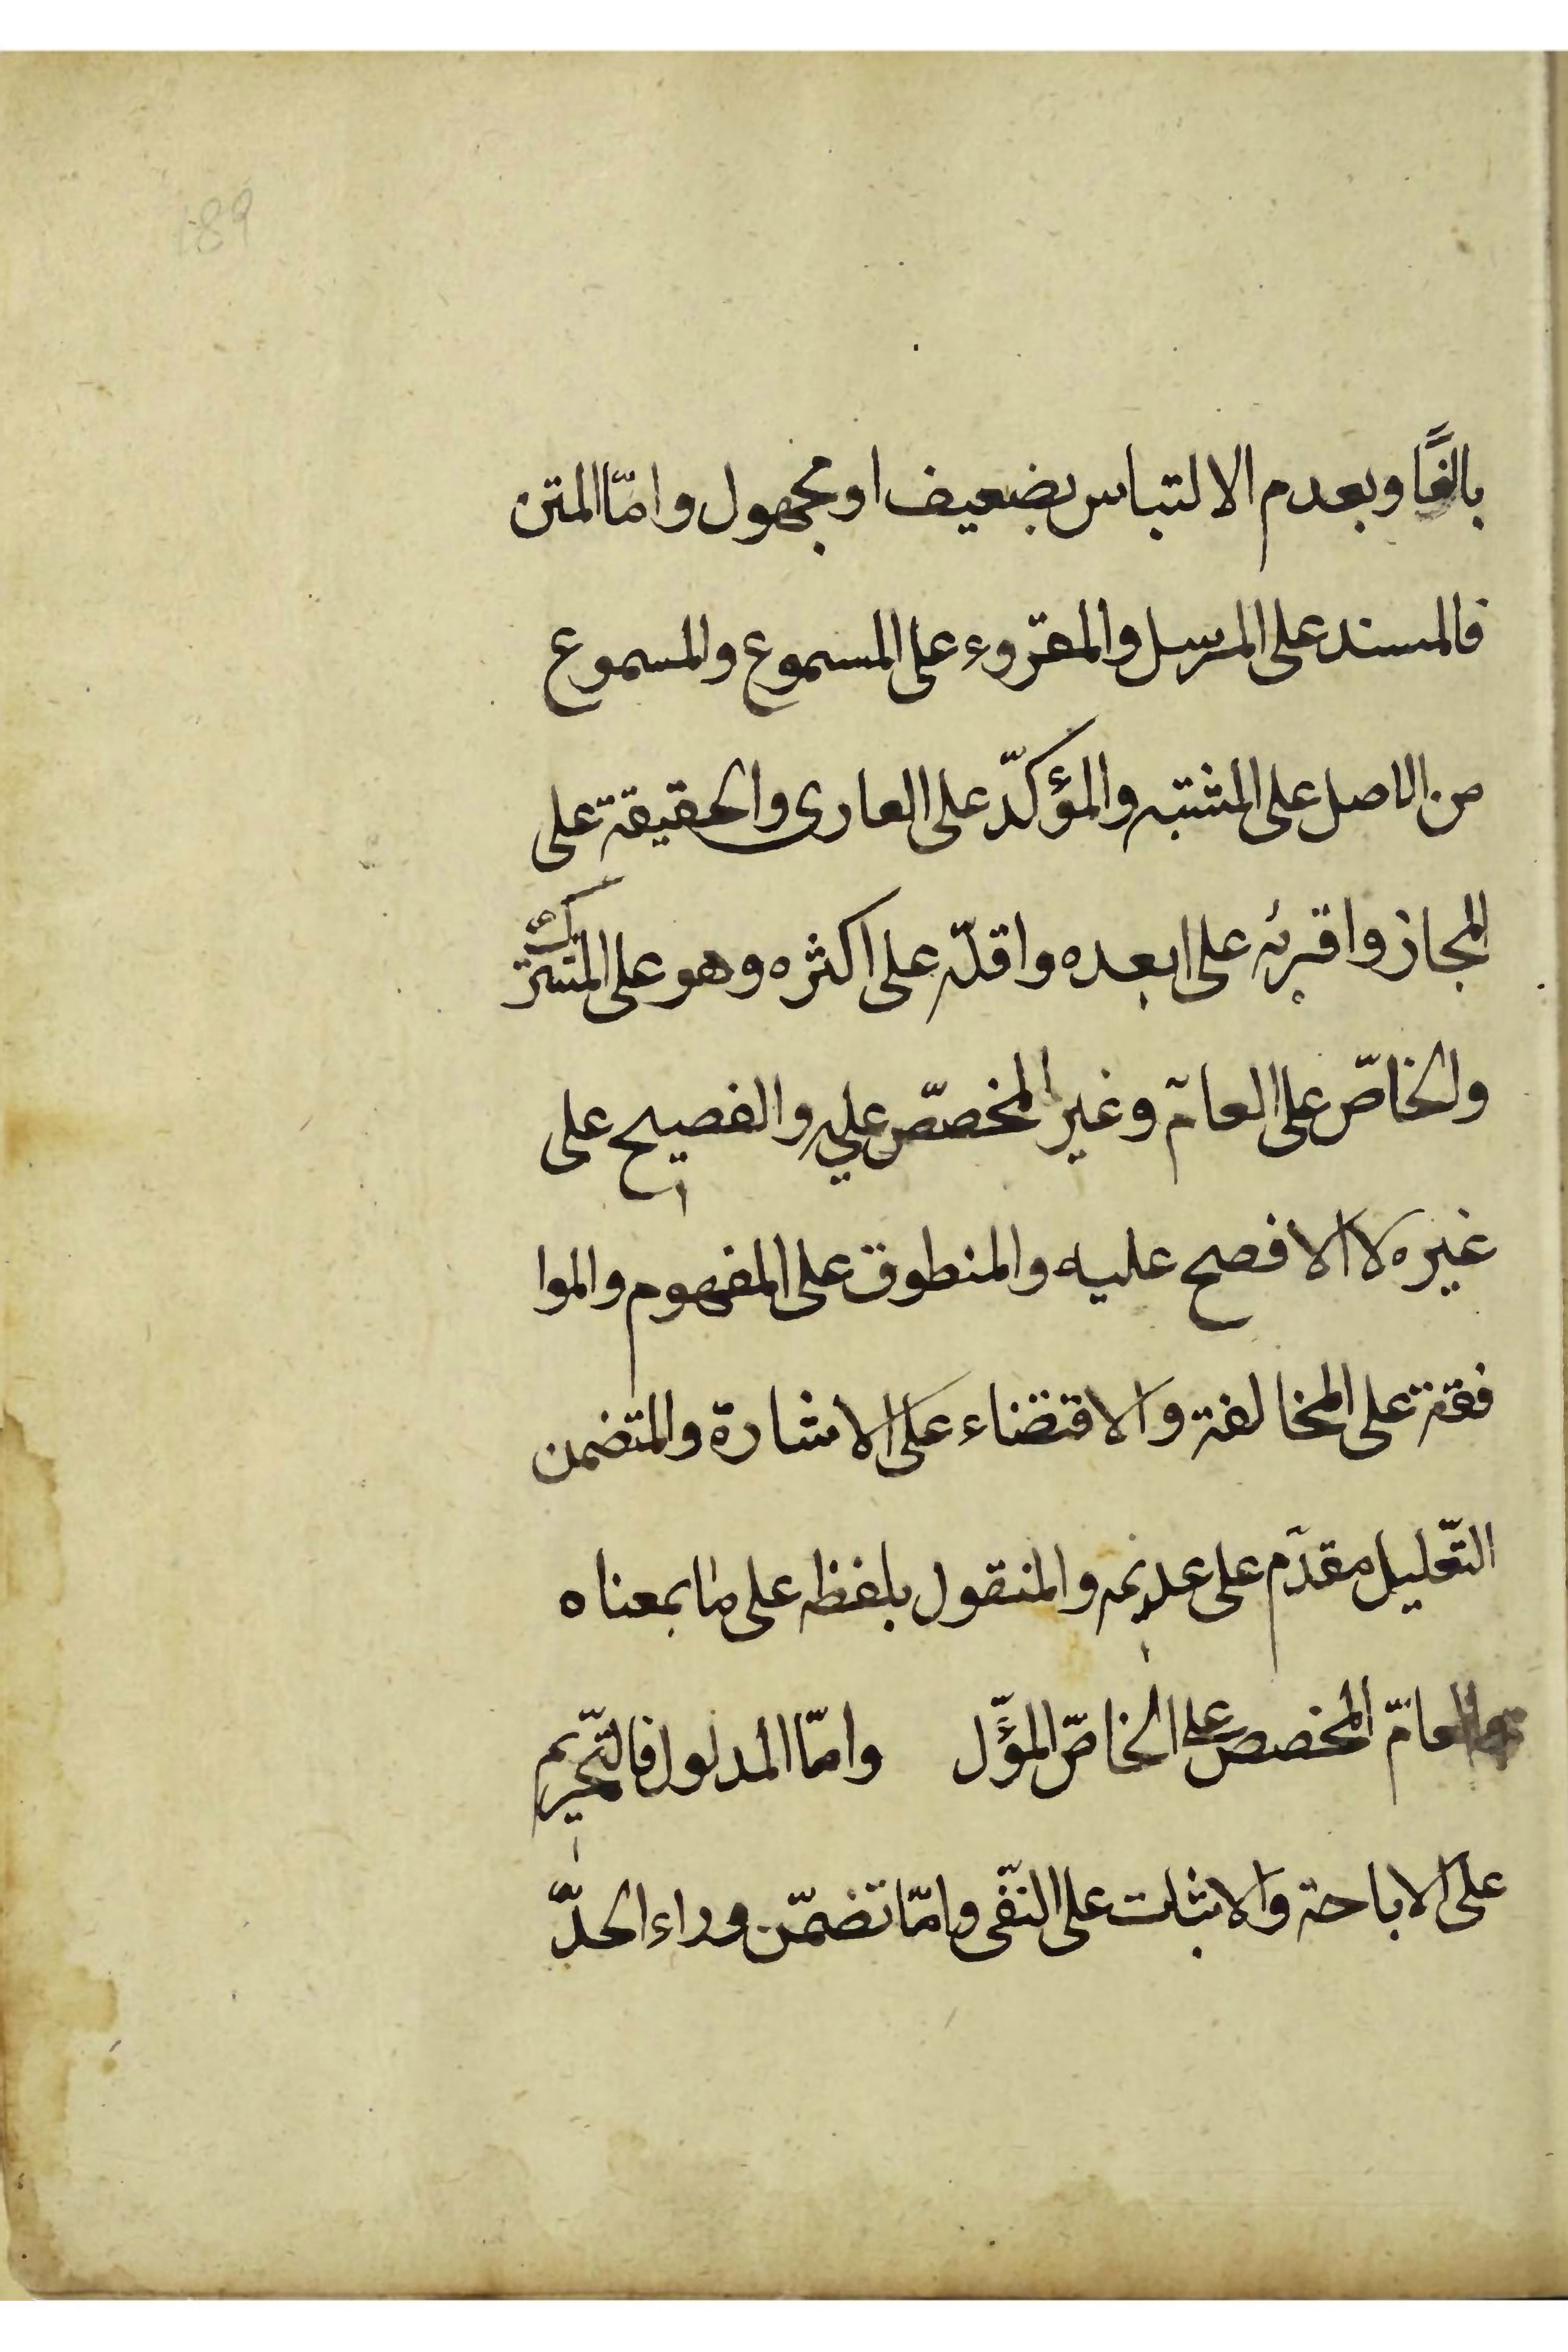 189
بالغًا وبعدم الالتباس بضعيف او مجهول وامّا المتن
فالمسند على المرسل والمقروء على المسموع والمسموع
من الاصل على المشتبه والمؤكّد على العارى والحقيقة على
المجاز واقربه على ابعده واقلّه على اكثره وهو على المشترك
والخاصّ على العامّ وغير المخصّص عليه والفصيح على
غيره لا الافصح عليه والمنطوق على المفهوم والموا
فقة على المخالفة والاقتضاء على الاشارة والمتضمن
التّعليل مقدّم على عديمه والمنقول بلفظه على ما بمعناه
والعامّ المخصص على الخاصّ المؤّل وامّا المدلول فالتّحريم
على الاباحة والاثبات على النّفى وما تضمّن وراء الحدّ